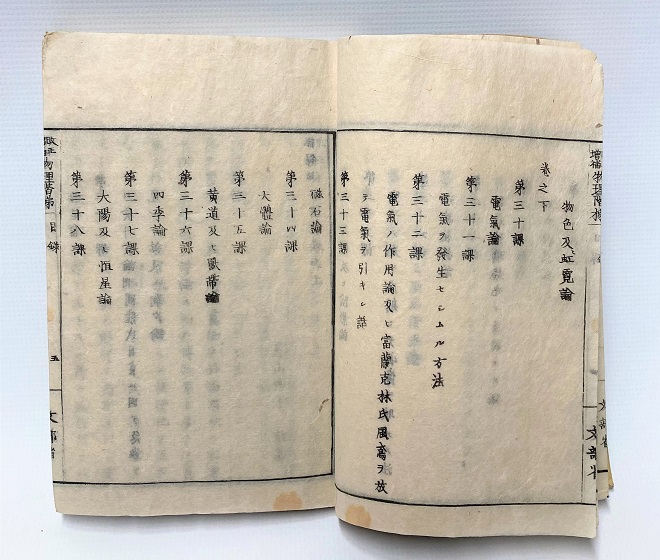 物色及ヒ虹霓論
卷之下
第三十課
電氣論
第三十一課
電氣ヲ發生セシムル方法
第三十二課
電氣ノ作用論及ヒ富蘭克林氏風鳶ヲ放
テ電氣ヲ引キシ語
第三十三課
磁石論
第三十四課
天體論
第三十五課
黄道及ヒ獸帶論
第三十六課
四季論
第三十七課
大陽及ヒ恒星論
第三十八課
目録
五
文部省